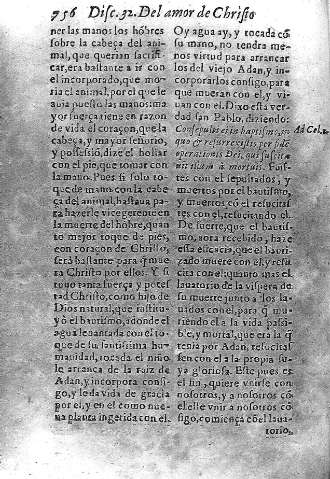 756 Disc. 32. Del amor de Christo
ner las manos los hõbres
sobre la cabeça del ani-
mal, que querian sacrifi-
car, era bastante a ir con
el incorporado, que mo-
ria el animal, por el que le
auia puesto las manos: ma
yor fuerça tiene en razon
de vida el coraçon, que la
cabeça, y mayor señorio,
y possesiõ, dize el hollar
con el pie, que tomar con
la mano. Pues si solo to-
que de mano con la cabe
ça del animal, bastaua pa
ra hazerle vicegerente en
la muerte del hõbre, quan
to mejor toque de pies,
con coraçon de Christo,
será bastante para q̃ mue
ra Christo por ellos. Y si
tuuo tanta fuerça, y potes
tad Christo, como hijo de
Dios natural, que institu-
yò el bautismo, adonde el
agua leuantada con el to-
que de su santissima hu-
manidad, tocada el niño
le arranca de la raiz de
Adan, y incorpora consi-
go, y le da vida de gracia
por el, y en el como nue-
ua planta ingerida con el.
Oy agua ay, y tocada cõ
su mano, no tendra me-
nos virtud para arrancar
los del viejo Adan, y in-
corporarlos consigo, para
que mueran con el, y vi-
uan con el. Dixo esta ver-
dad san Pablo, diziendo:
Consepulti ei in baptismo, in Ad Col. 2.
quo & resurrexistis per fidẽ
operationis Dei, qui suscita
uit illum à mortuis. Fuis-
tes con el sepultados, y
muertos por el bautismo,
y muertos cõ el resucitas
tes con el, resucitando el.
De suerte, que el bautis-
mo, aora recebido, haze
essa eficacia, que el bauti-
zado muere con el, y resu
cita con el: quanto mas el
lauatorio de la vispera de
su muerte junto a los la-
uidos con el, para q̃ mu-
riendo el a la vida passi-
ble, y mortal, que era la q̃
tenia por Adan, resucitas-
sen con el a la propia su-
ya gloriosa. Este pues es
el fin, quiere viuir con
nosotros, y a nosotros cõ
el, el le viuir a nosotros cõ
sigo, comiença cõ el laua-
torio,